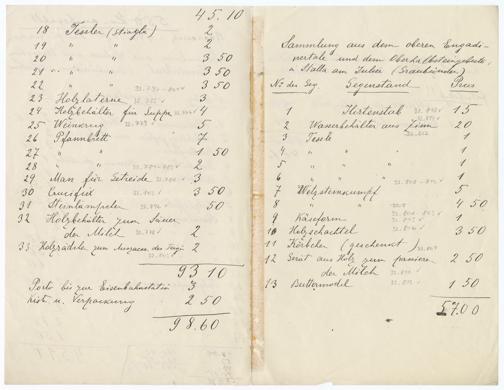 45.10
18 Tessle (Stiagla) 2
19 " " 2
20 " " 3 50
21 " " 3 50
22 " " 3 50
23 Holzlaterne 3
24 Holzbehälter für Suppe 4
25 Weinkrug 5
26 Pfannbrett 7
27 " 1 50
28 " 2
29 Mass für Getreide 3
30 Crucifix 3 50
31 Steinlampeten 50
32 Holzbehälter zum
der Milch 2
33 Holzrädche zum des Teigs
2
93 10
Porto bis zur Eisenbahnstation 3
Kist. u. Verpackung 2 50
98.60
Sammlung aus dem oberen Engadi-
nertale und dem Oberhalbsteingebiete,
in Stalla am Julier (Graubünden)
No. des Geg. Gegenstand Preis
1 Hirtenstab 15
2 Wasserbehälter aus 20
3 Tessle 1
4 " " 1
5 " " 1
6 " " 1
7 Wetzsteinkumpf 5
8 " " 4 50
9 Käseform 1
10 Holzschachtel 3 50
11 Körbchen (geschenkt)
12 Gerät aus Holz zum passieren 2 50
der Milch
13 Buttermodel 1 50
57.00